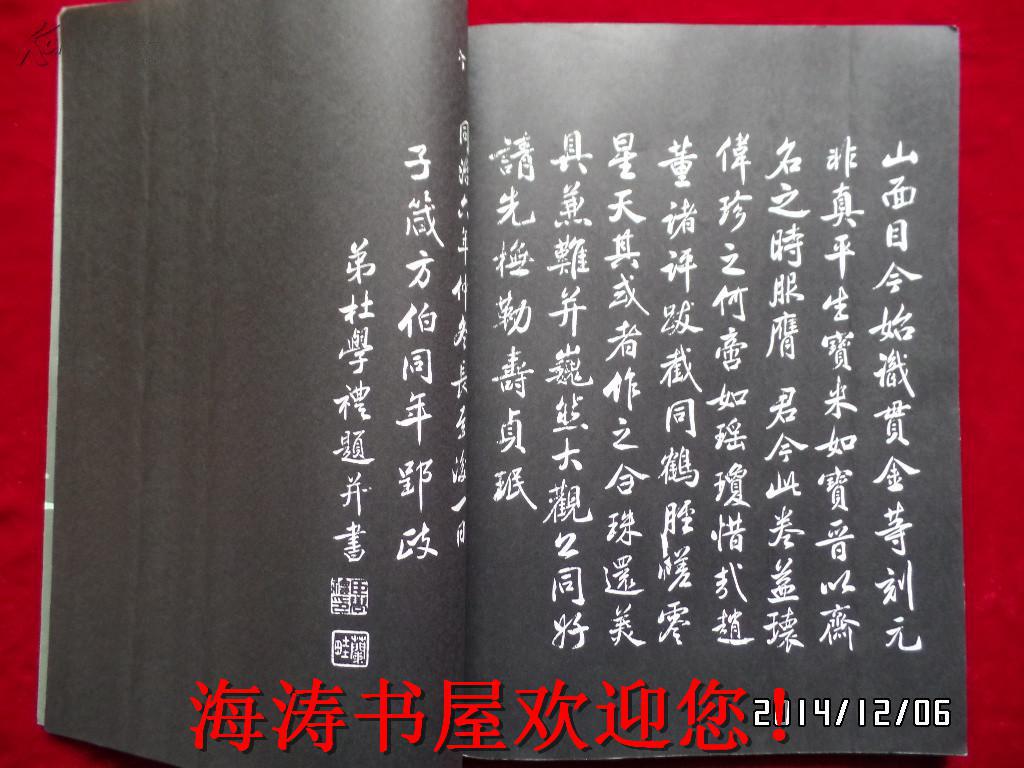 山面目今始識貫金等刻元
非真平生寶米如寶晉以齋
名之時服膺君今此卷益瓌
偉珍之何啻如瑤瓊惜哉趙
董諸評跋截同鶴脛嗟零
星天其或者作之合珠還美
具兼難并巍然大觀公同好
請先橅勒壽貞珉
同治六年仲冬長至後一日
子箴方伯同年郢政
弟杜學禮題并書
海涛书屋欢迎您！
2014/12/06